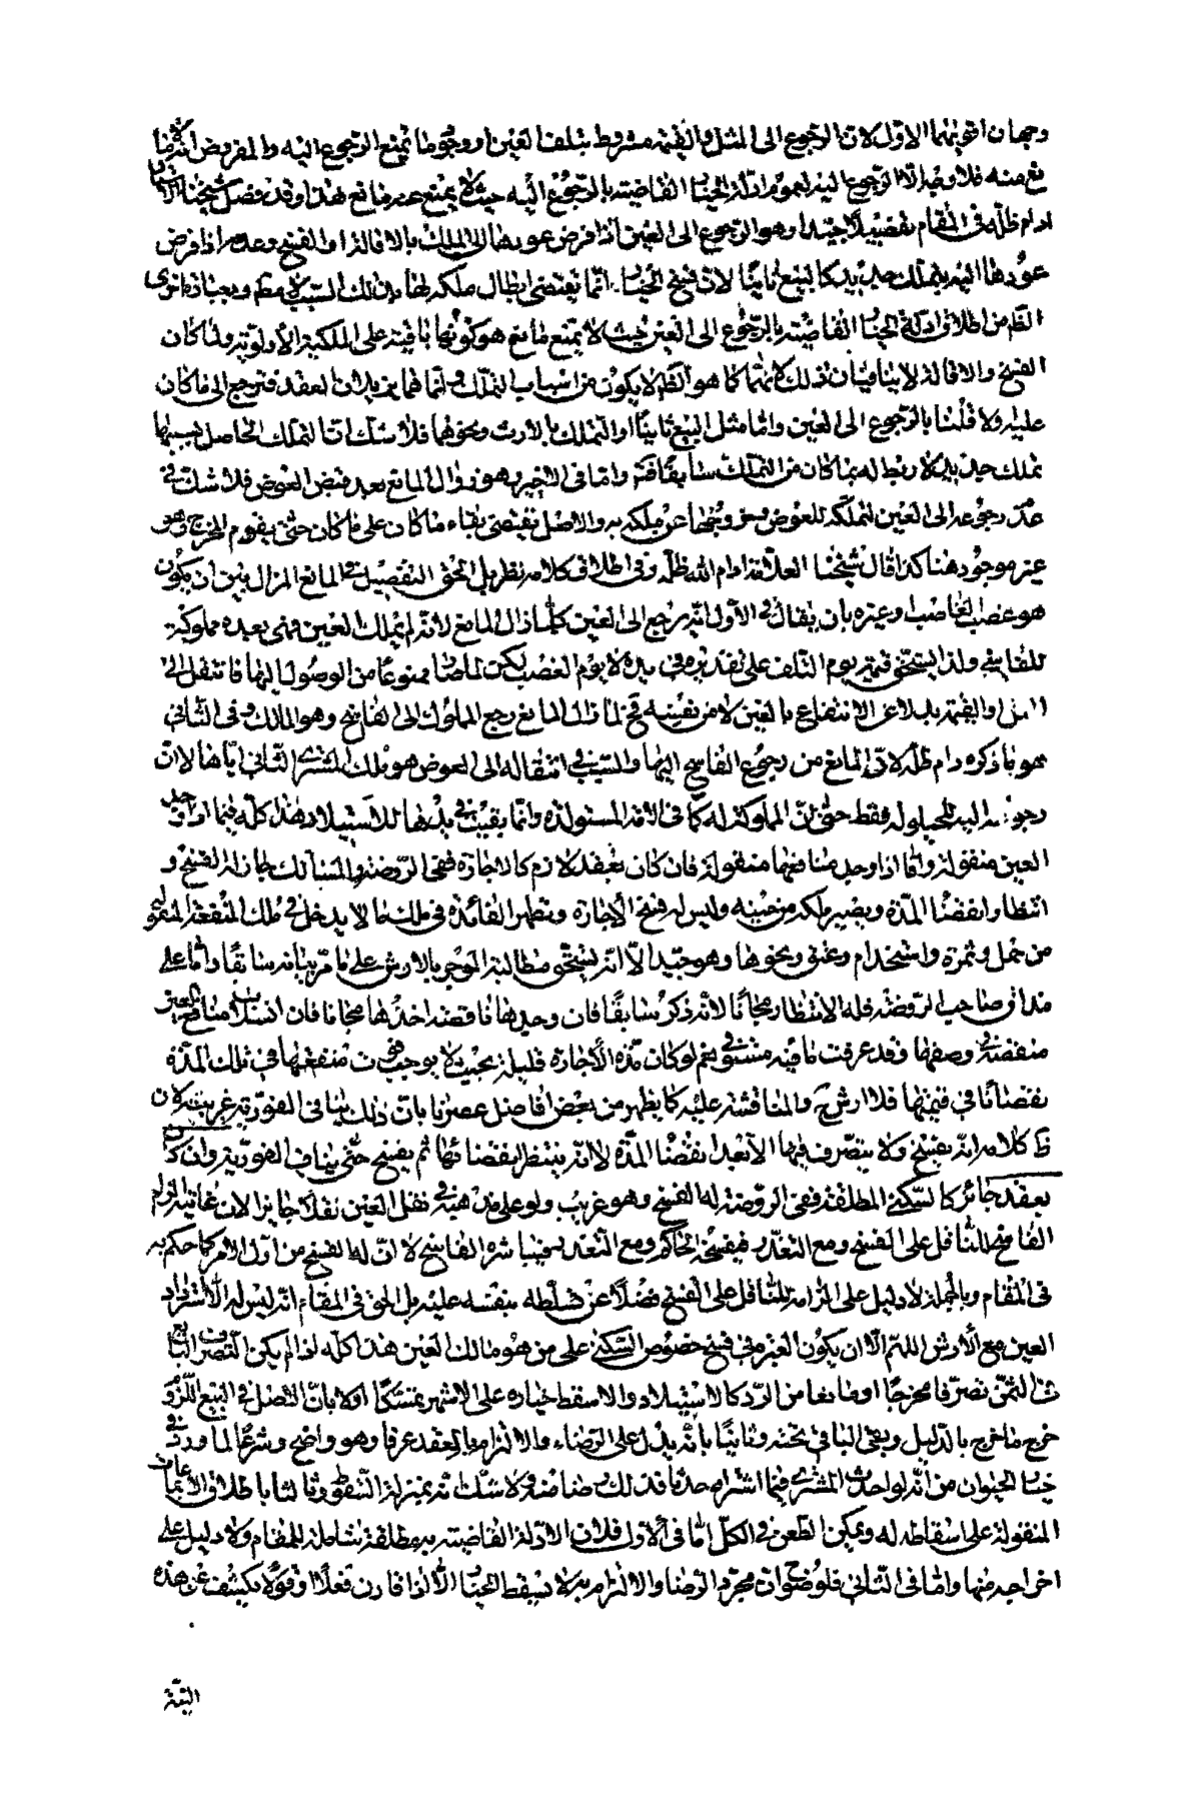 وجهان اقويهما الاوّل لان الرجوع الى المثل والقيمة مشروط بتلف العين او وجود ما يمنع الرجوع اليه والمفروض انه لا
مانع منه فلا وجه الا الرجوع اليه لعموم ادلة الخيار القاضية بالرجوع اليه حيث لا يمنع عنه مانع هذا وقد فصل شيخنا الاستاد
ادام ظله في المقام تفصيلا جيدا وهو الرجوع الى العين اذا فرض عودها الى الملك بالاقالة او الفسخ وعدمه اذا فرض
عودها اليه بتملك جديد كالبيع ثانيا لان فسخ الخيار انما يقتضى ابطال ملكه لها بذلك السبب لا مطلقا
الظ من اطلاق ادلة الخيار القاضية بالرجوع الى العين حيث لا يمنع مانع هو كونها باقية على الملكية الأولوية ولما كان
الفسخ والاقالة لا ينافيان ذلك لانهما كما هو الظ لا يكون من اسباب التملك وانما هما مزيلان العقد فترجع الى ما كان
عليه ولا قلنا بالرجوع الى العين واما مثل البيع ثانيا او التملك بالارث ونحوهما فلا شك ان التملك الحاصل بسببها
تملك جديد لا ربط له بما كان من التملك سابقا فت واما في الاخير وهو زوال المانع بعد قبض العوض فلا شك في
عدم رجوعه الى العين لتملكه للعوض وخروجها عن ملكه به والاصل يقتضى بقاء ما كان على ما كان حتى يقوم المخرج وهو
غير موجود هنا كذا قال شيخنا العلامة ادام الله ظله وفي اطلاق كلامه نظر بل الحق التفصيل في المانع المزال بين ان يكون
هو غصب الغاصب او غيره بان يقال في الاول انه يرجع الى العين كلما زال المانع لانه لم يملك العين فهى بعده مملوكة
للفاسخ ولذا يستحق قيمته يوم التلف على تقديره في يده لا يوم الغصب لكن لما صار ممنوعا من الوصول اليها فانتقل الى
المثل او القيمة بدلا عن الانتفاع بالعين لا من نفسه فح لما زال المانع رجع المملوك الى الفاسخ وهو المالك وفي الثاني
هو ما ذكره دام ظله لان المانع من رجوع الفاسخ اليها والسبب في انتقاله الى العوض هو ملك المشترى الثاني اياها لان
رجوعه اليه للحيلولة فقط حتى تكون المملوكة له كما في الامة المستولدة وانما بقيت في يدها للاستيلاد هذا كله فيما اذا وجد
العين منقولة واما اذا وجد منافعها منقولة فان كان بعقد لازم كالاجارة ففى الروضة والمسالك جاز له الفسخ و
انتظار انقضاء المدة ويصير ملكه من حينه وليس له فسخ الاجارة وتظهر الفائدة في ملك ما لا يدخل في تلك المنفعة المنقولة
من حمل وثمرة واستخدام وعتق ونحوها وهو جيد الا انه يستحق مطالبة الموجر بالارش على ما مر بيانه سابقا واما على
مذاق صاحب الروضة فله الانتظار مجانا لانه ذكر سابقا فان وجدها ناقصة اخذها مجانا فان انتقال منافع العين
منقصة في وصفها وقد عرفت ما فيه مشتق نعم لو كان مدة الأجارة قليلة بحيث لا يوجب فوت منفعتها في تلك المدة
نقصانا في قيمتها فلا ارش ح والمناقشة عليه كما يظهر من بعض افاضل عصرنا بان ذلك ينافى الفورية غريب لان
ظ كلامه انه يفسخ ولا يتصرف فيها الا بعد انقضاء المدة لا انه ينتظر انقضائها ثم يفسخ حتى ينافي الفورية وان كان
بعقد جائز كالسكنى المطلقة ففى الروضة له الفسخ وهو غريب ولو على مذهبه في نقل العين نقلا جايزا لان غايته الزام
الفاسخ للناقل على الفسخ ومع التعذر فيفسخه الحاكم ومع التعذر يباشره الفاسخ لا ان له الفسخ من اول الامر كما حكم به
في المقام وبالجملة لا دليل على الزامه للناقل على الفسخ فضلا عن تسلطه بنفسه عليه بل الحق في المقام انه ليس له الا استرداد
العين مع الأرش اللهم الا ان يكون الغرض في فسخ خصوص السكنى على من هو مالك العين هذا كله اذا لم يكن التصرف البايع
في الثمن تصرفا مخرجا او مانعا من الرد كالاستيلاد والا سقط خياره على الاشهر متمسكا اولا بان الاصل في البيع اللزوم
خرج ما خرج بالدليل وبقى الباقي تحته وثانيا بانه يدل على الرضاء والالتزام بالعقد عرفا وهو واضح وشرعا لما ورد في
خيار الحيوان من انه لو احدث المشترى فيما اشتراه حدثا فذلك رضا منه ولا شك انه بمنزلة التنصيص وثالثا باطلاق الاجماعات
المنقولة على اسقاطه له ويمكن الطعن في الكل اما في الاول فلان الادلة القاضية به مطلقة شاملة للمقام ولا دليل على
اخراجه منها واما في الثاني فلوضوح ان مجرد الرضا والالتزام به لا يسقط الخيار الا اذا قارن فعلا او قولا يكشف عن هذه
البقية